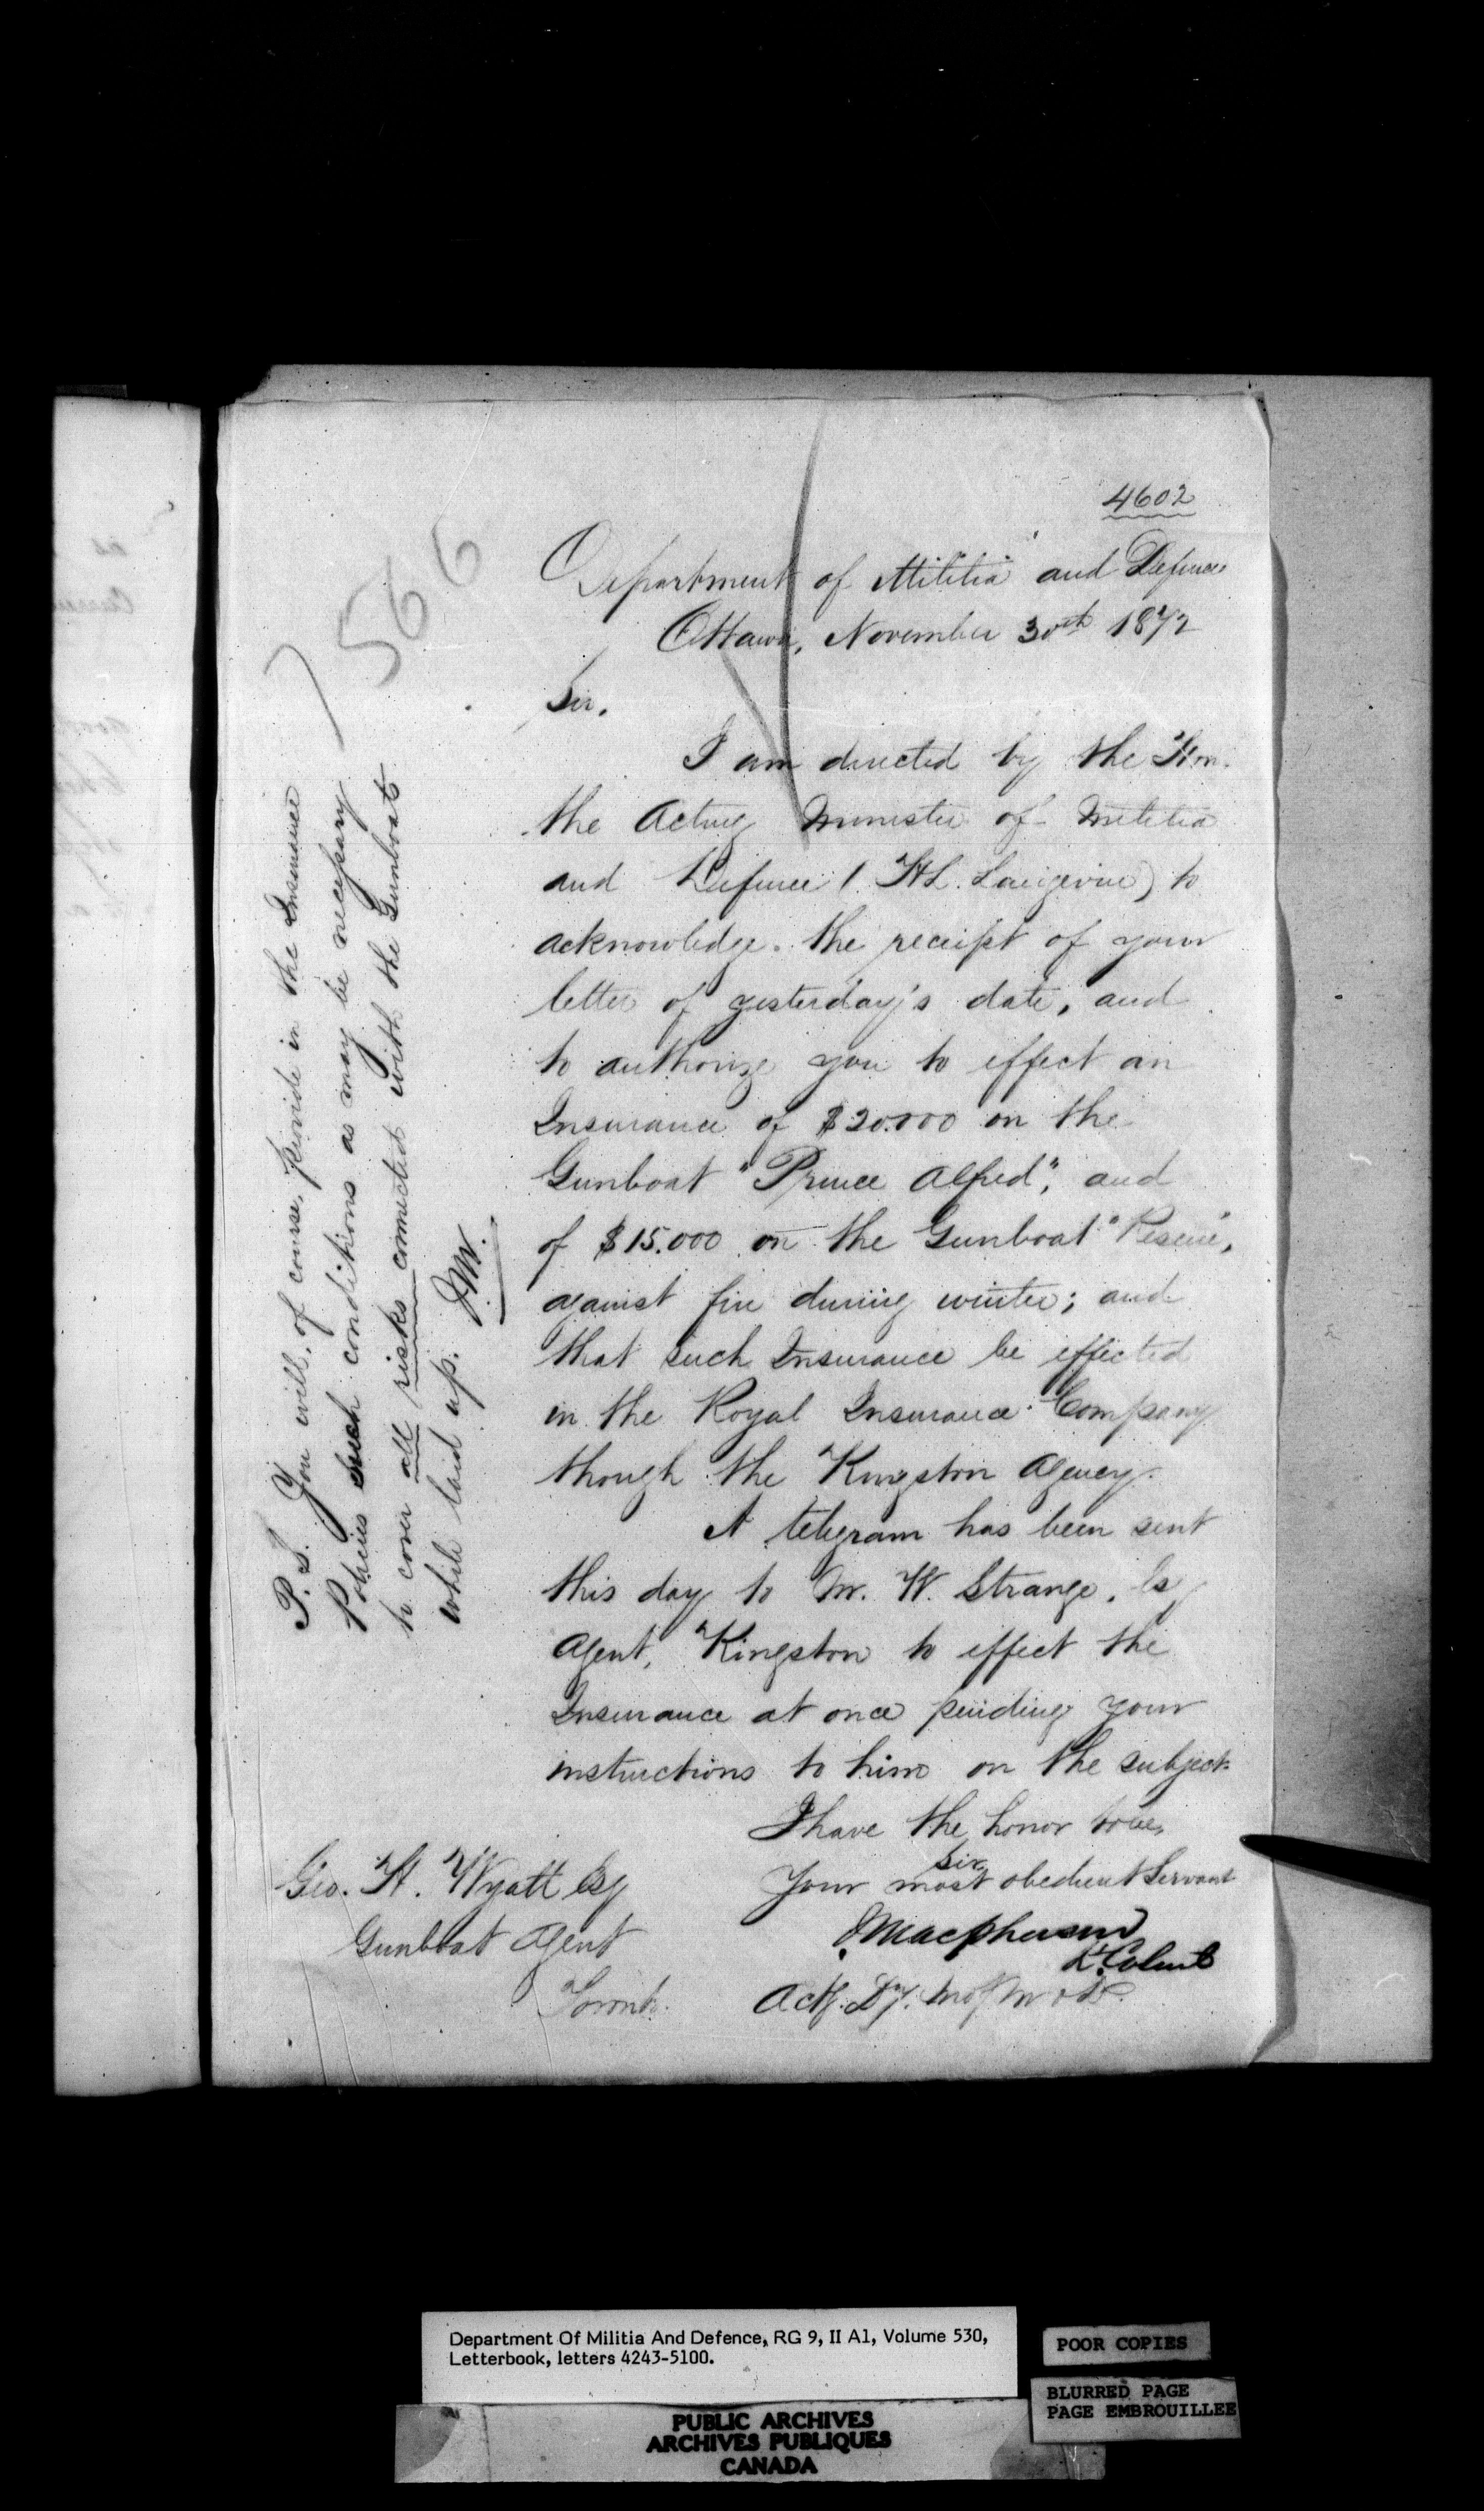 4602
566
Department of Militia and Defence
Ottawa, November 30th 1872
Sir,
I am directed by the Hon.
the Acting Minister of Militia
and Defence (H.L. Langevin) to
acknowledge the receipt of your
letter of yesterday's date, and
to authorize you to effect an
Insurance of $20.000 on the
Gunboat "Prince Alfred", and
of $15.000 on the Gunboat "Rescue",
against fire during winter; and
that such Insurance be effected
in the Royal Insurance Company
though the Kingston Agency.
A telegram has been sent
this day to Mr. W. Strange,
Agent, Kingston to effect the
Insurance at once pending your
instructions to him on the subject.
I have the honor to be,
Sir
Your most obedient Servant
JMacpherson
Lt. Colonel
Actg. Dy. M of M & D.
Geo. H. Wyatt Esq
Gunboat Agent
Toronto.
P.S. You will, of course, provide in the Insurance
Policies such conditions as may be necessary
to cover all risks connected with the Gunboats
while laid up. J.M.
Department Of Militia And Defence, RG 9, II A1, Volume 530,
Letterbook, letters 4243-5100.
POOR COPIES
BLURRED PAGE
PAGE EMBROUILLEE
PUBLIC ARCHIVES
ARCHIVES PUBLIQUES
CANADA